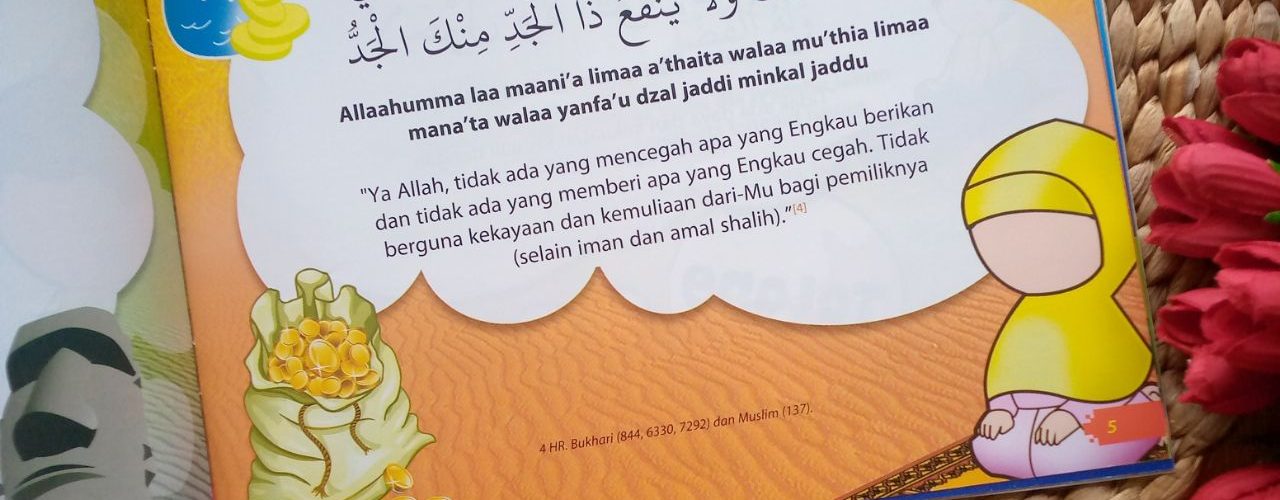 وَلَا يَنْفَعُ ذَا الْجَدِّ مِنْكَ الْجَدُّ
Allaahumma laa maani'a limaa a'thaita walaa mu'thia limaa
mana'ta walaa yanfa'u dzal jaddi minkal jaddu
"Ya Allah, tidak ada yang mencegah apa yang Engkau berikan
dan tidak ada yang memberi apa yang Engkau cegah. Tidak
berguna kekayaan dan kemuliaan dari-Mu bagi pemiliknya
(selain iman dan amal shalih)."[4]
4 HR. Bukhari (844, 6330, 7292) dan Muslim (137).
5